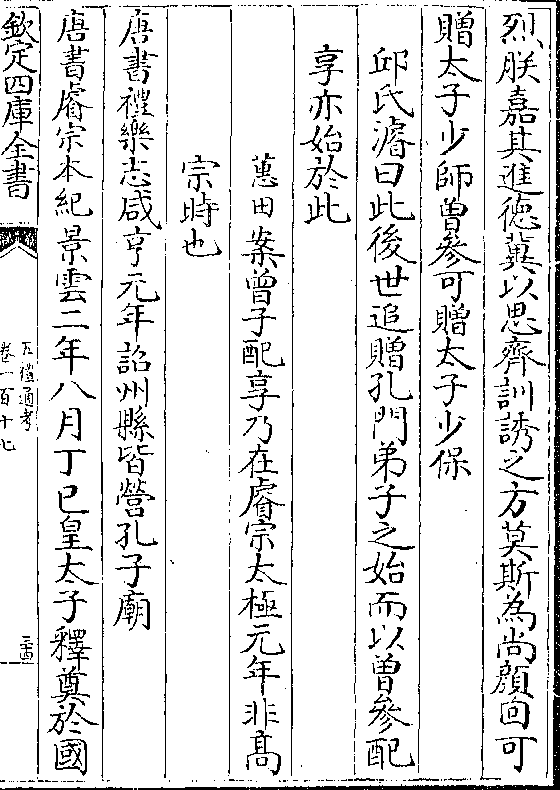 烈朕嘉其進德冀以思齊訓誘之方莫斯為尚顔回可
贈太子少師曽參可贈太子少保
邱氏濬曰此後世追贈孔門弟子之始而以曽參配
享亦始於此
蕙田案曽子配享乃在睿宗太極元年非髙
宗時也
唐書禮樂志咸亨元年詔州縣皆營孔子廟
唐書睿宗本紀景雲二年八月丁巳皇太子釋奠於國
欽定四庫全書
五禮通考
卷一百十七
三四